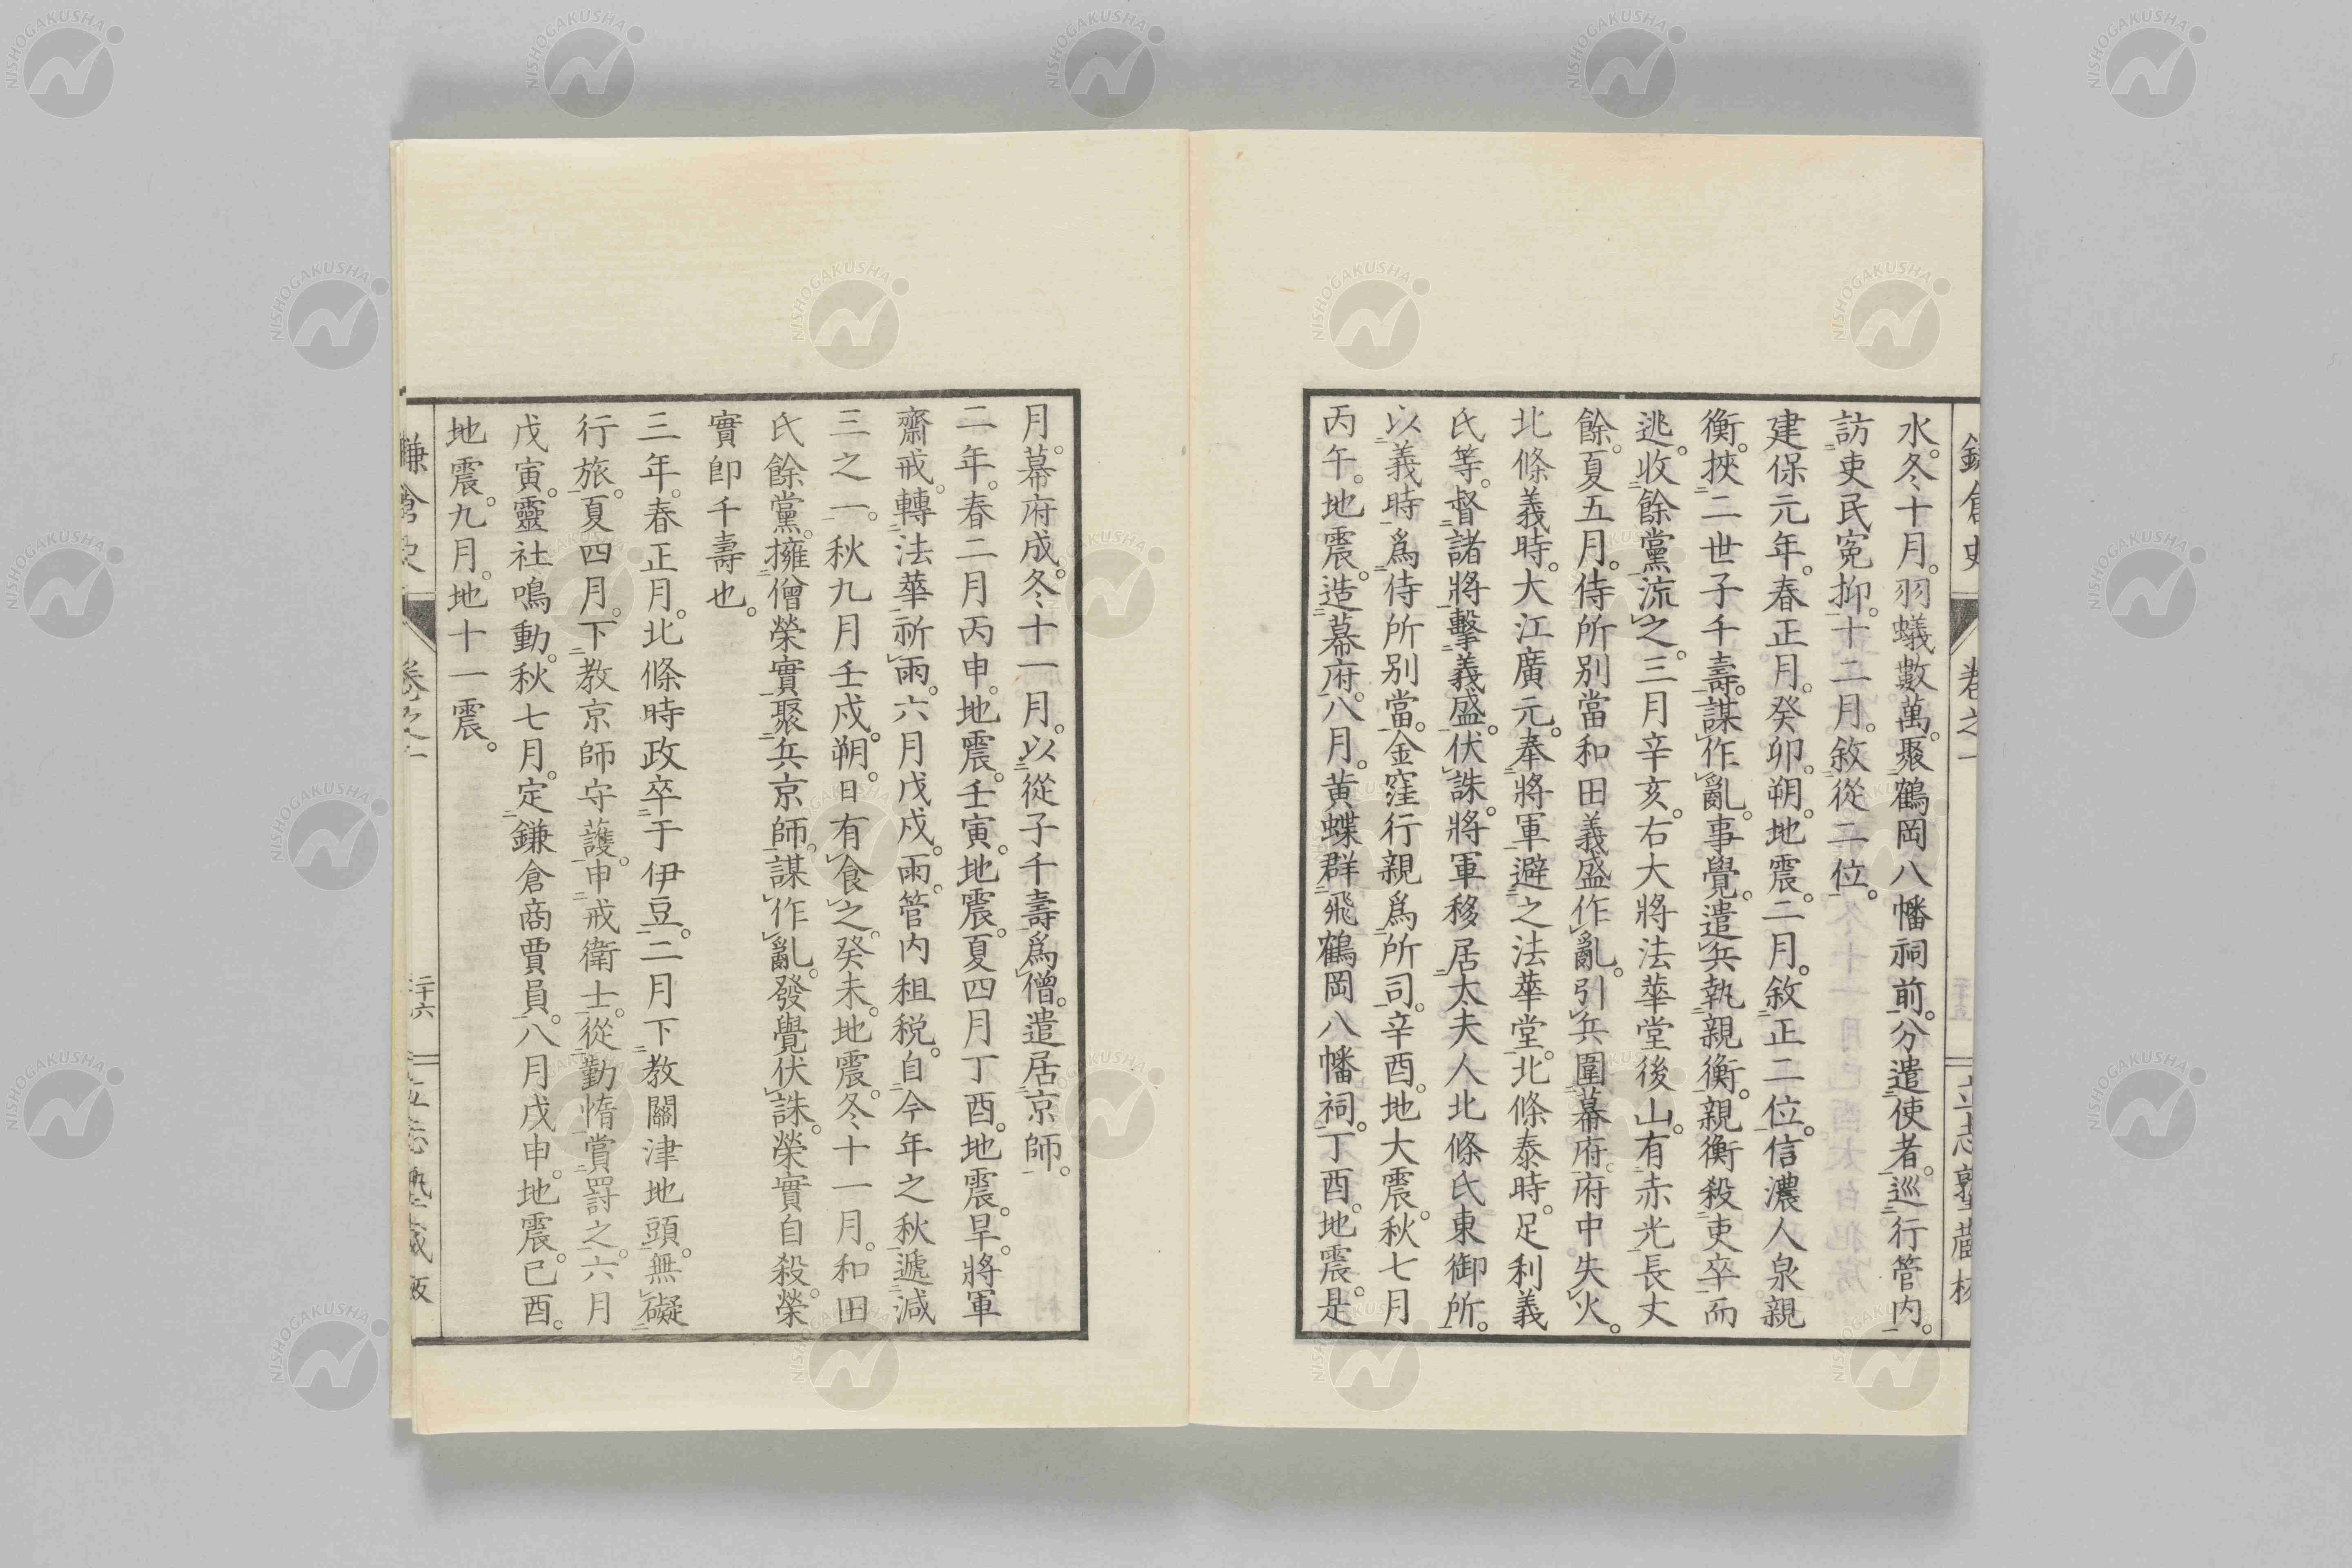 水。冬十月。羽蟻數萬。聚鶴岡八幡祠前。分遣使者。巡行管内。
訪吏民寃抑。十二月。敘從二位。
建保元年。春正月。癸卯。朔。地震。二月。敘正二位。信濃人泉親
衡。挾二世子千壽。謀作亂。事覺。遣兵執親衡。親衡殺吏卒而
逃。收餘黨流之。三月辛亥。右大將法華堂後山。有赤光長丈
餘。夏五月。侍所別當和田義盛作亂。引兵圍幕府。府中失火。
北條義時。大江廣元。奉將軍避之法華堂。北條泰時。足利義
氏等。督諸將擊義盛。伏誅。將軍移居太夫人北條氏東御所。
以義時爲侍所別當。金窪行親爲所司。辛酉。地大震。秋七月
丙午。地震。造幕府。八月。黄蝶群飛鶴岡八幡祠。丁酉。地震。是
月。幕府成。冬十一月。以從子千壽爲僧。遣居京師。
二年。春二月丙申。地震。壬寅。地震。夏四月丁酉。地震。旱。將軍
齋戒。轉法華祈雨。六月戊戌。雨。管内租税。自今年之秋。遞減
三之一。秋九月壬戌。朔。日有食之。癸未。地震。冬十一月。和田
氏餘黨。擁僧榮實聚兵京師。謀作亂。發覺伏誅。榮實自殺。榮
實卽千壽也。
三年。春正月。北條時政卒于伊豆。二月下教關津地頭。無礙
行旅。夏四月。下教京師守護。申戒衛士。從勤惰賞罰之。六月
戊寅。靈社鳴動。秋七月。定鎌倉商賈員。八月戊申。地震。己酉。
地震。九月。地十一震。
鎌倉史
卷之一
二十六
NISHOGAKUSHA